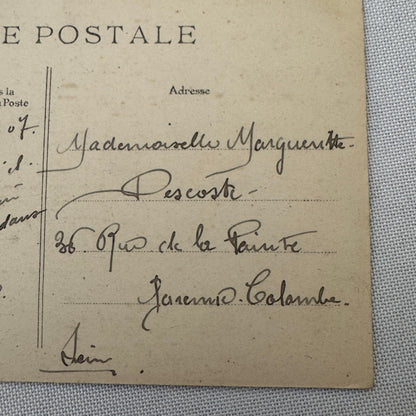 E POSTALE
s la
Poste
Adresse
07.
Mademoiselle Marguerite
Descoste
36 Rue de la Pointe
Garenne-Colombe.
dans
Sein